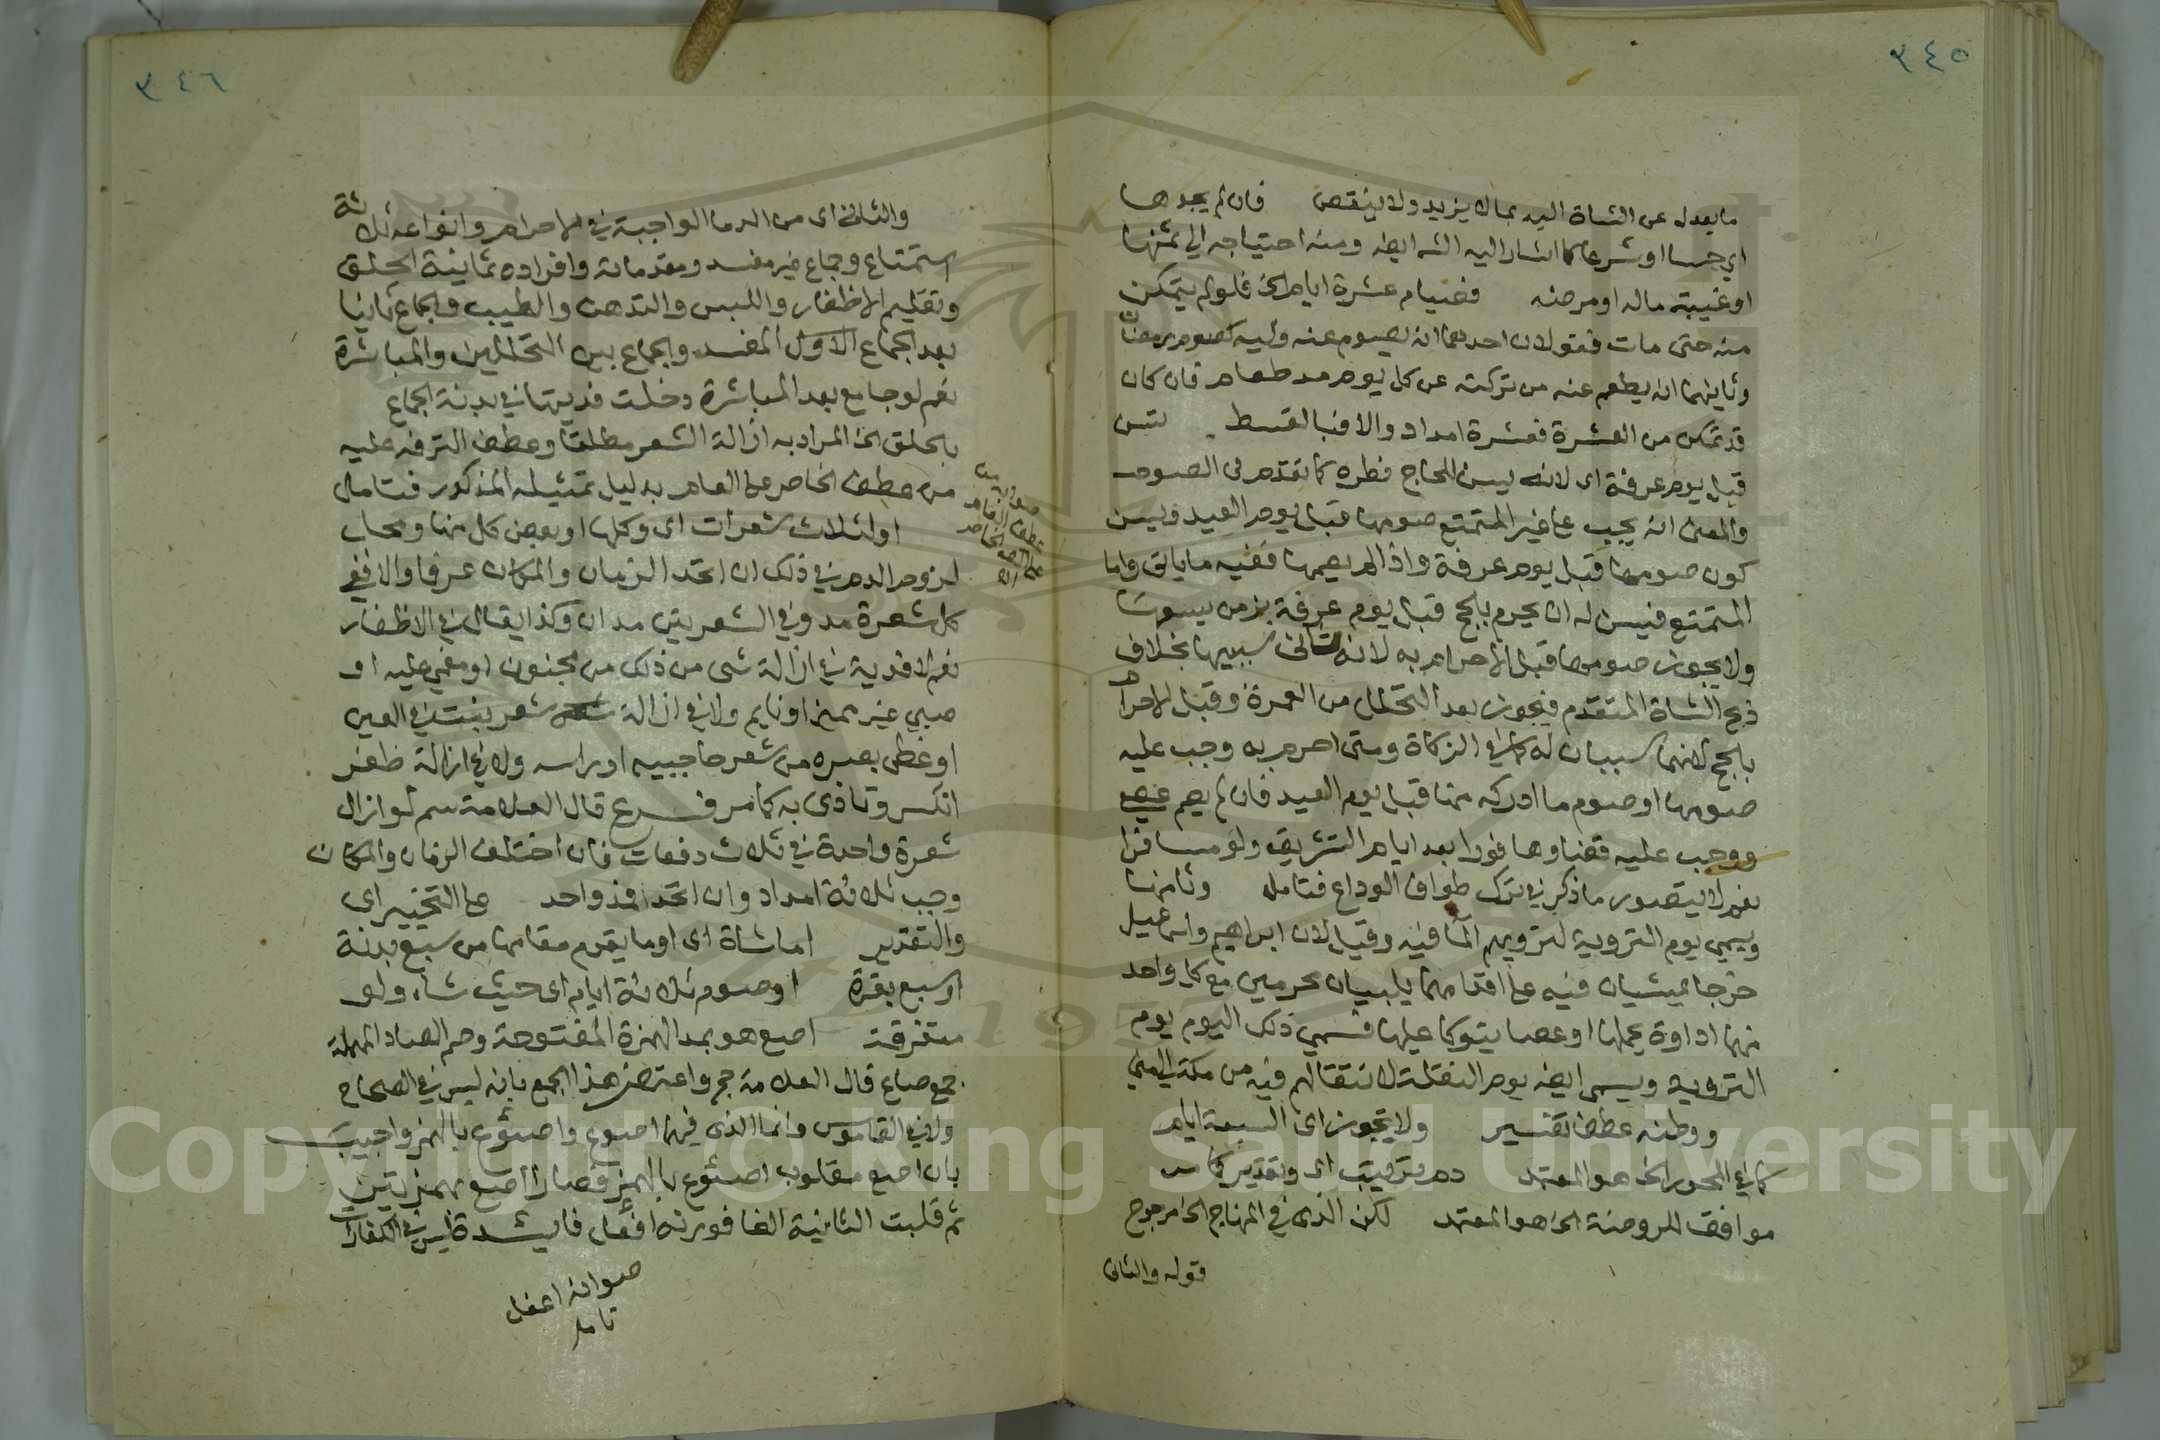 ٣٤٥
ما يعدل عن الشاة اليه بما لا يزيد ولا ينقص فان لم يجدها
اي حسا او شرعا كما اشار اليه الش ايضا ومنه احتياجه الى ثمنها
او غيبة ماله او مرضه فصيام عشرة ايام الخ فلو لم يتمكن
منه حتى مات فقولان احدهما انه يصوم عنه وليه كصوم رمضان
وثانيهما انه يطعم عنه من تركته عن كل يوم مد طعام فان كان
قد تمكن من العشرة فعشرة امداد والا فبالقسط تسن
قبل يوم عرفة اى لانه يسن للحاج فطره كما تقدم فى الصوم
والمعنى انه يجب على غير المتمتع صومها قبل يوم العيد ويسن
كون صومها قبل يوم عرفة واذا لم يصمها ففيه ما ياتى واما
المتمتع فيسن له ان يحرم بالحج قبل يوم عرفة بزمن يسعها
ولا يجوز صومها قبل الاحرام به لانه ثانى سببيها بخلاف
ذبح الشاة المتقدم فيجوز بعد التحلل من العمرة وقبل الاحرام
بالحج لانهما سببان له كما فى الزكاة ومتى احرم به وجب عليه
صومها او صوم ما ادركه منها قبل يوم العيد فان لم يصم عصى
ووجب عليه قضاوها فورا بعد ايام التشريق ولو مسافرا
نعم لا يتصور ما ذكر فى ترك طواف الوداع فتامله وثامنها
ويسمي يوم التروية لترويهم الماء فيه وقيل لان ابراهيم واسماعيل
خرجا يمشيان فيه على اقدامهما يلبيان محرمين مع كل واحد
منهما اداوة يحملها او عصا يتوكا عليها فسمي ذلك اليوم يوم
التروية ويسمى ايضا يوم النقلة لانتقالهم فيه من مكة الى منى
ووطنه عطف تفسير ولا يجوز اى السبعة ايام
كما فى المحرر الخ هو المعتمد دم ترتيب اى وتقدير كما مر
موافقا للروضة الخ هو المعتمد لكن الذى فى المنهاج الخ مرجوح
قوله والثانى
٣٤٦
والثانى اى من الدما الواجبة فى الاحرام وانواعه ثلاثة
استمتاع وجماع غير مفسد ومقدماته وافراده ثمانية الحلق
وتقليم الاظفار واللبس والتدهن والطيب والجماع ثانيا
بعد الجماع الاول المفسد والجماع بين التحللين والمباشرة
نعم لو جامع بعد المباشرة دخلت فديتها فى بدنة الجماع
بالحلق الخ المراد به ازالة الشعر مطلقا وعطف الترفه عليه
من عطف الخاص على العام بدليل تمثيله المذكور فتامل
صوابه من
عطف العام
على الخاص
او لثلاث شعرات اى وكلها او بعض كل منها ومحل
لزوم الدم فى ذلك ان اتحد الزمان والمكان عرفا والا ففى
كل شعرة مد وفى الشعرتين مدان وكذا يقال فى الاظفار
نعم لا فدية فى ازالة شى من ذلك من مجنون او مغمى عليه او
صبي غير مميز او نايم ولا فى ازالة شعر ينبت فى العين
او غطى بصره من شعر حاجبيه او راسه ولا فى ازالة ظفر
انكسر وتاذى به كما مر فرع قال العلامة سم لو ازال
شعرة واحدة فى ثلاث دفعات فان اختلف الزمان والمكان
وجب ثلاثة امداد وان اتحدا فمد واحد على التخيير اى
والتقدير اما شاة اى او ما يقوم مقامها من سبع بدنة
او سبع بقرة او صوم ثلاثة ايام اى حيث شاء ولو
متفرقة اصع هو بمد الهمزة المفتوحة وضم الصاد المهملة
جمع صاع قال العلامة حج واعترض هذا الجمع بانه ليس فى الصحاح
ولا فى القاموس وانما الذى فيهما اصوع واصئوع بالهمز واجيب
بان اصع مقلوب اصئوع بالهمز فصار أأصع بهمزتين
ثم قلبت الثانية الفا فوزنه افعل فايدة ليس فى الكفارات
صوابه اعفل
تامل
Copyright © King Saud University
1957